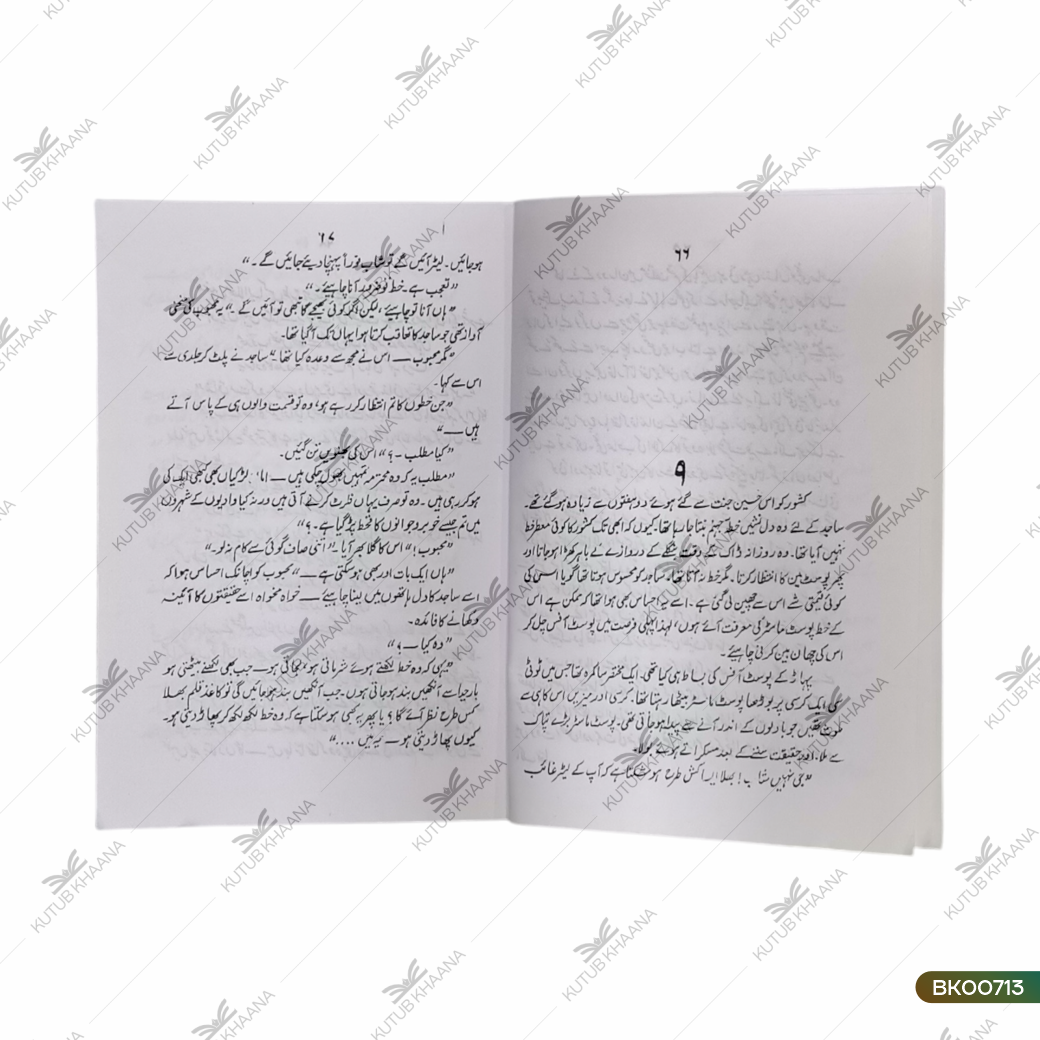 ۶۶
۹
کشور کو اس حسین جنت سے گئے ہوئے دو ہفتوں سے زیادہ ہو گئے تھے۔
ساجد کے لئے وہ دل نشیں خطہ جہنم بنتا جا رہا تھا۔ کیوں کہ ابھی تک کشور کا کوئی معطر خط
نہیں آیا تھا۔ وہ روزانہ ڈاک کے وقت بنگلے کے دروازے نے باہر کھڑا ہو جاتا اور
پوسٹ مین کا انتظار کرتا۔ مگر خط نہ آتا تھا۔ ساجد کو محسوس ہوتا تھا گویا اس کی
کوئی قیمتی شے اس سے چھین لی گئی ہے۔ اسے یہ احساس بھی ہوا تھا کہ ممکن ہے اس
کے خط پوسٹ ماسٹر کی معرفت آئے ہوں، لہذا پہلی فرصت میں پوسٹ آفس چل کر
اس کی چھان بین کرنی چاہیئے۔
پہاڑ کے پوسٹ آفس کی بساط ہی کیا تھی۔ ایک مختصر سا کمرہ تھا جس میں ٹوٹی
ایک کرسی پر بوڑھا پوسٹ ماسٹر بیٹھا رہتا تھا۔ کرسی اور میزیں اس کاہی سے
ملوث تھیں جو بادلوں کے اندر آنے سے پیدا ہو جاتی تھی۔ پوسٹ ماسٹر بڑے تپاک
سے ملا۔ اور حقیقت سننے کے بعد مسکراتے ہوئے بولا۔
”جی نہیں شاب! بھلا ایسا کس طرح ہو سکتا ہے کہ آپ کے لیٹر غائب
۶۷
ہو جائیں۔ لیٹر آئیں گے تو شاب فوراً پہنچا دیئے جائیں گے۔“
”تعجب ہے۔ خط تو ضرور آنا چاہیئے۔“
”ہاں آنا تو چاہیئے، لیکن اگر کوئی بھیجے گا تبھی تو آئیں گے۔“ یہ محبوب کی
آواز تھی جو ساجد کا تعاقب کرتا ہوا یہاں تک آ گیا تھا۔
”مگر محبوب — اس نے مجھ سے وعدہ کیا تھا۔“ ساجد نے پلٹ کر جلدی سے
اس سے کہا۔
”جن خطوں کا تم انتظار کر رہے ہو، وہ تو قسمت والوں ہی کے پاس آتے
ہیں —“
”کیا مطلب۔؟“ اس کی بھنویں تن گئیں۔
”مطلب یہ کہ وہ محترمہ تمہیں بھول چکی ہیں — اماں لڑکیاں بھی کبھی ایک کی
ہو کر رہی ہیں۔ وہ تو صرف یہاں فلرٹ کرنے آتی ہیں ورنہ کیا وادیوں کے شہروں
میں تم جیسے خوبرو جوانوں کا قحط پڑ گیا ہے۔؟“
”محبوب!“ اس کا گلا بھر آیا۔ ”اتنی صاف گوئی سے کام نہ لو۔“
”ہاں ایک بات اور بھی ہو سکتی ہے —“ محبوب کو اچانک احساس ہوا کہ
اسے ساجد کا دل ہاتھوں میں لینا چاہیئے — خواہ مخواہ اسے حقیقتوں کا آئینہ
دکھانے کا فائدہ۔
”وہ کیا —؟“
”یہی کہ وہ خط لکھتے ہوئے شرماتی ہو، لجاتی ہو — جب بھی لکھنے بیٹھتی ہو
بار حیا سے آنکھیں بند ہو جاتی ہوں۔ جب آنکھیں بند ہو جائیں گی تو کاغذ قلم بھلا
کس طرح نظر آئے گا؟ یا پھر یہ بھی ہو سکتا ہے کہ وہ خط لکھ لکھ کر پھاڑ دیتی ہو۔
کیوں پھاڑ دیتی ہو — یہ میں ....“
KUTUB KHAANA
BK00713